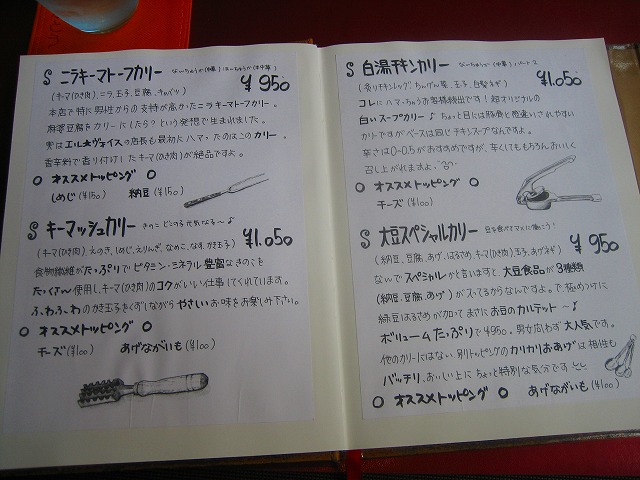 S ニラキーマトーフカリー
¥950
(キーマ(ひき肉)、ニラ、玉子、豆腐、キャベツ)
本店で特に男性からの支持が高かったニラキーマトーフカリー。
麻婆豆腐をカリーにしたら?という発想で生まれました。
実はエル・ア・ヴォイスの店長も最初にハマったのはこのカリー。
香辛料で香り付けしたキーマ(ひき肉)が絶品ですよ。
○ オススメトッピング ○
しめじ(¥150) 納豆(¥150)
S キーマッシュカリー きのこ どこの子 元気なる〜♪
¥1.050
(キーマ(ひき肉)、えのき、しめじ、えりんぎ、なめこ、なす、かき玉子)
食物繊維がたっぷりでビタミン・ミネラル豊富なきのこを
たくさん使用し、キーマ(ひき肉)のコクがいい仕事してくれています。
ふわふわのかき玉子をくずしながらやさしいお味をお楽しみ下さい。
○ オススメトッピング ○
チーズ(¥100) あげながいも(¥100)
S 白湯チキンカリー パート2
¥1.050
コレにハマっちゃうお客様続出です!超オリジナルの
白いスープカリー♪ ちょっと目には豚骨と感違いされやすい
カリーですがベースは同じチキンスープなんですよ。
辛さは0〜0.5がおすすめですが、辛くしてももちろんおいしく
召し上がれますよ。
○ オススメトッピング ○
チーズ(¥100)
S 大豆スペシャルカリー 豆を食べてマメに働こう!
¥950
(納豆、豆腐、あげ、はるさめ、キーマ(ひき肉)、玉子、あさネギ)
なんでスペシャルかと言いますと、大豆食品が3種類
(納豆、豆腐、あげ)が入ってるからなんですよ。で、極めつけに
緑豆はるさめが加わってまさにお豆のカルテット〜♪
ボリュームたっぷりで¥950。男女問わず大人気です。
他のカリーにはない別トッピングのカリカリおあげは相性も
バッチリ。おいしい上にちょっと特別な気分です
○ オススメトッピング ○ あげながいも(¥100)